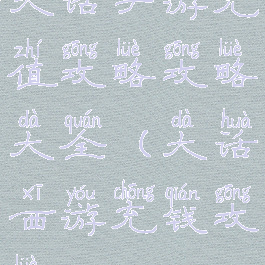 大话手游充
zhí gōng lüè gōng lüè
值攻略攻略
dà quán dà huà
大全（大话
xī yóu chōng qián gōng
西游充钱攻
lüè